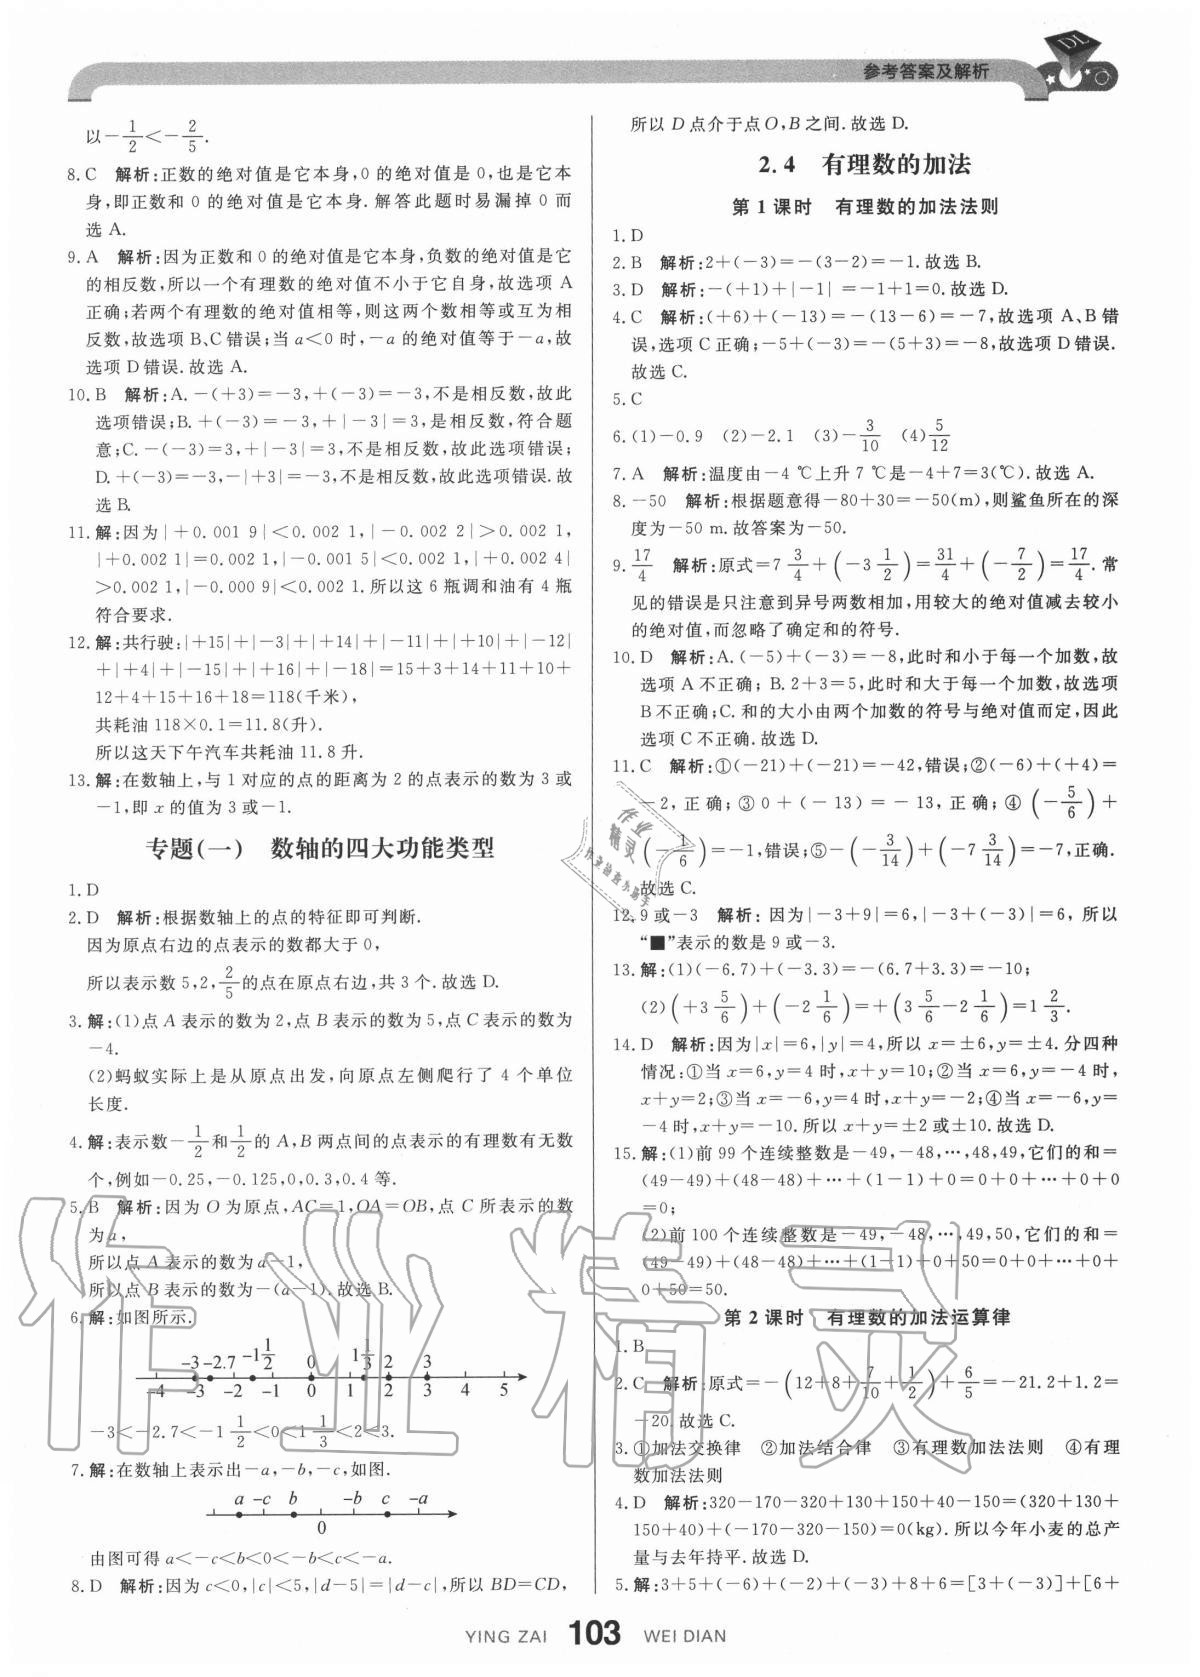 参考答案及解析
以-1/2<-2/5.
8.C 解析:正数的绝对值是它本身,0的绝对值是0,也是它本
身,即正数和0的绝对值是它本身.解答此题时易漏掉0而
选A.
9.A 解析:因为正数和0的绝对值是它本身,负数的绝对值是它
的相反数,所以一个有理数的绝对值不小于它自身,故选项A
正确;若两个有理数的绝对值相等,则这两个数相等或互为相
反数,故选项B、C错误;当a<0时,-a的绝对值等于-a,故
选项D错误.故选A.
10.B 解析:A.-(+3)=-3,+(-3)=-3,不是相反数,故此
选项错误;B.+(-3)=-3,+|-3|=3,是相反数,符合题
意;C.-(-3)=3,+|-3|=3,不是相反数,故此选项错误;
D.+(-3)=-3,-|+3|=-3,不是相反数,故此选项错误.故
选B.
11.解:因为|+0.001 9|<0.002 1,|-0.002 2|>0.002 1,
|+0.002 1|=0.002 1,|-0.001 5|<0.002 1,|+0.002 4|
>0.002 1,|-0.000 9|<0.002 1.所以这6瓶调和油有4瓶
符合要求.
12.解:共行驶:|+15|+|-3|+|+14|+|-11|+|+10|+|-12|
+|+4|+|-15|+|+16|+|-18|=15+3+14+11+10+
12+4+15+16+18=118(千米),
共耗油118×0.1=11.8(升).
所以这天下午汽车共耗油11.8升.
13.解:在数轴上,与1对应的点的距离为2的点表示的数为3或
-1,即x的值为3或-1.
专题(一) 数轴的四大功能类型
1.D
2.D 解析:根据数轴上的点的特征即可判断.
因为原点右边的点表示的数都大于0,
所以表示数5,2,2/5的点在原点右边,共3个.故选D.
3.解:(1)点A表示的数为2,点B表示的数为5,点C表示的数为
-4.
(2)蚂蚁实际上是从原点出发,向原点左侧爬行了4个单位
长度.
4.解:表示数-1/2和1/2的A,B两点间的点表示的有理数有无数
个,例如-0.25,-0.125,0,0.3,0.4等.
5.B 解析:因为O为原点,AC=1,OA=OB,点C所表示的数
为a,
所以点A表示的数为a-1,
所以点B表示的数为-(a-1).故选B.
6.解:如图所示.
-3 -2.7 -1 1/2 0 1 1/3 2 3
-4 -3 -2 -1 0 1 2 3 4 5
-3<-2.7<-1 1/2<0<1 1/3<2<3.
7.解:在数轴上表示出-a,-b,-c,如图.
a -c b -b c -a
0
由图可得a<-c<b<0<-b<c<-a.
8.D 解析:因为c<0,|c|<5,|d-5|=|d-c|,所以BD=CD,
所以D点介于点O,B之间.故选D.
2.4 有理数的加法
第1课时 有理数的加法法则
1.D
2.B 解析:2+(-3)=-(3-2)=-1.故选B.
3.D 解析:-(+1)+|-1|=-1+1=0.故选D.
4.C 解析:(+6)+(-13)=-(13-6)=-7,故选项A、B错
误,选项C正确;-5+(-3)=-(5+3)=-8,故选项D错误.
故选C.
5.C
6.(1)-0.9 (2)-2.1 (3)-3/10 (4)5/12
7.A 解析:温度由-4 ℃上升7 ℃是-4+7=3(℃).故选A.
8.-50 解析:根据题意得-80+30=-50(m),则鲨鱼所在的深
度为-50 m.故答案为-50.
9.17/4 解析:原式=7 3/4+(-3 1/2)=31/4+(-7/2)=17/4.常
见的错误是只注意到异号两数相加,用较大的绝对值减去较小
的绝对值,而忽略了确定和的符号.
10.D 解析:A.(-5)+(-3)=-8,此时和小于每一个加数,故
选项A不正确;B.2+3=5,此时和大于每一个加数,故选项
B不正确;C.和的大小由两个加数的符号与绝对值而定,因此
选项C不正确.故选D.
11.C 解析:①(-21)+(-21)=-42,错误;②(-6)+(+4)=
-2,正确;③0+(-13)=-13,正确;④(-5/6)+
(-1/6)=-1,错误;⑤-(-3/14)+(-7 3/14)=-7,正确.
故选C.
12.9或-3 解析:因为|-3+9|=6,|-3+(-3)|=6,所以
“■”表示的数是9或-3.
13.解:(1)(-6.7)+(-3.3)=-(6.7+3.3)=-10;
(2)(+3 5/6)+(-2 1/6)=+(3 5/6-2 1/6)=1 2/3.
14.D 解析:因为|x|=6,|y|=4,所以x=±6,y=±4.分四种
情况:①当x=6,y=4时,x+y=10;②当x=6,y=-4时,
x+y=2;③当x=-6,y=4时,x+y=-2;④当x=-6,y=
-4时,x+y=-10.所以x+y=±2或±10.故选D.
15.解:(1)前99个连续整数是-49,-48,…,48,49,它们的和=
(49-49)+(48-48)+…+(1-1)+0=0+0+…+0+0
=0;
(2)前100个连续整数是-49,-48,…,49,50,它们的和=
(49-49)+(48-48)+…+(1-1)+0+50=0+0+…+0+
0+50=50.
第2课时 有理数的加法运算律
1.B
2.C 解析:原式=-(12+8+7/10+1/2)+6/5=-21.2+1.2=
-20.故选C.
3.①加法交换律 ②加法结合律 ③有理数加法法则 ④有理
数加法法则
4.D 解析:320-170-320+130+150+40-150=(320+130+
150+40)+(-170-320-150)=0(kg).所以今年小麦的总产
量与去年持平.故选D.
5.解:3+5+(-6)+(-2)+(-3)+8+6=[3+(-3)]+[6+
YING ZAI 103 WEI DIAN
作业精灵